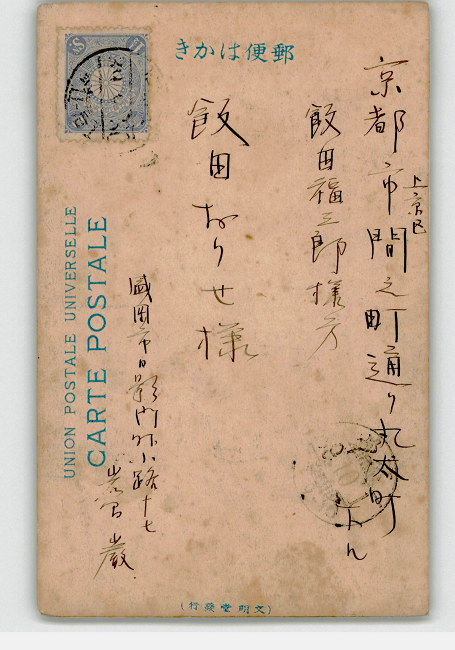 郵便はかき
京都市上京区間之町通り丸太町
飯田福三郎様方
飯田おりせ様
盛岡市日影門外小路十七
巌
UNION POSTALE UNIVERSELLE
CARTE POSTALE
(文明堂發行)